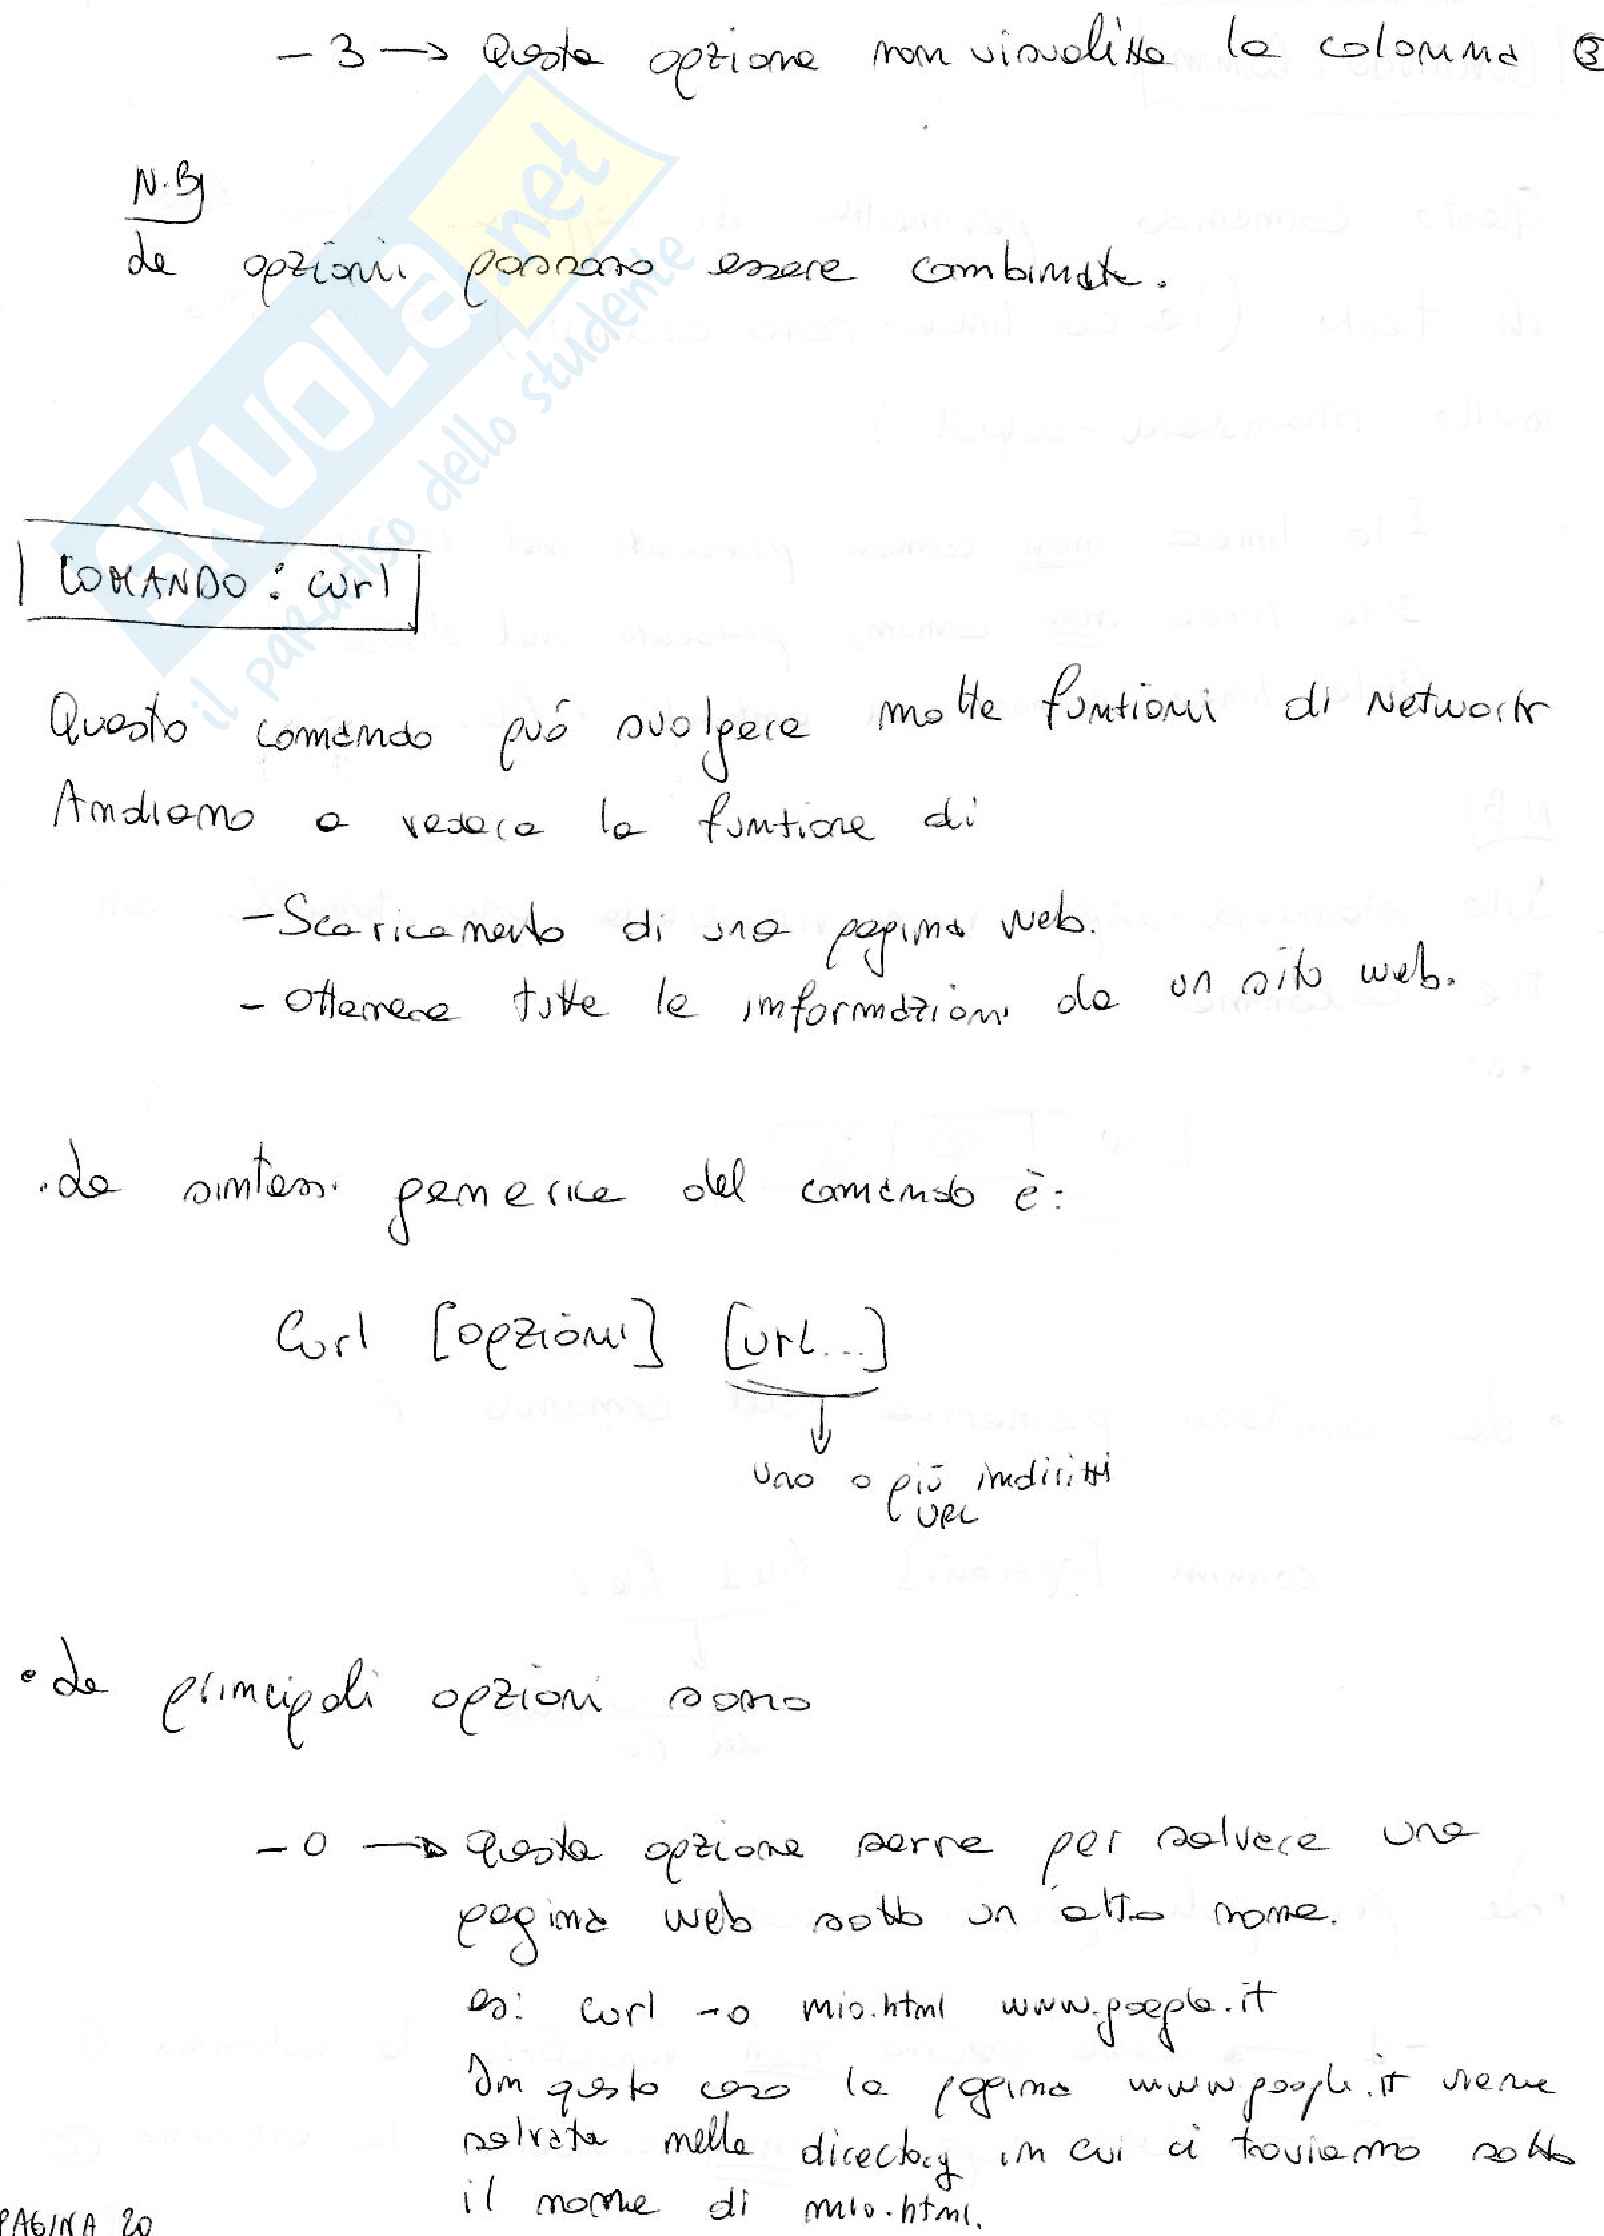 -3 → Questa opzione non visualizza la colonna 3
N.B
Le opzioni possono essere combinate.
SKUOLA.net
il paradiso dello studente
COMANDO: curl
Questo comando può svolgere molte funzioni di Network
Andiamo a vedere la funzione di
- Scaricamento di una pagina web.
- Ottenere tutte le informazioni da un sito web.
. La sintassi generica del comando è:
Curl [opzioni] [url...]
↓
uno o più indirizzi
URL
• Le principali opzioni sono
-o → Questa opzione serve per salvare una
pagina web sotto un altro nome.
es: curl -o mio.html www.google.it
In questo caso la pagina www.google.it viene
salvata nella directory in cui ci troviamo sotto
il nome di mio.html.
PAGINA 20